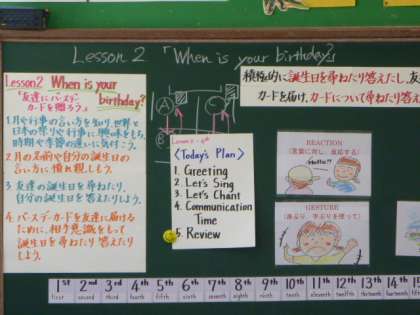 Lesson 2 「When is your birthday?」
Lesson2 When is your
birthday?
「友達にバースデー
カードを贈ろう」
1.月や行事の言い方を知り、世界と
日本の祭りや行事に興味をもち、
時期や季節の違いに気付こう。
2.月の名前や自分の誕生日の
言い方に慣れ親しもう。
3.友達の誕生日を尋ねたり、
自分の誕生日を答えたりしよう。
4.バースデーカードを友達に届ける
ために、相手意識をもって
誕生日を尋ねたり答えたり
しよう。
A
B
C
積極的に誕生日を尋ねたり答えたりし、友
カードを届け、カードについて尋ねたり答え
Lesson 2 - 4th
〈Today's Plan〉
1. Greeting
2. Let's Sing
3. Let's Chant
4. Communication
Time
5. Review
REACTION
(言葉に対し、反応する)
Hello!!
GESTURE
(身ぶり、手ぶりを使って)
1st 2nd 3rd 4th 5th 6th 7th 8th 9th 10th 11th 12th 13th 14th 15
first second third fourth fifth sixth seventh eighth ninth tenth eleventh twelfth thirteenth fourteenth